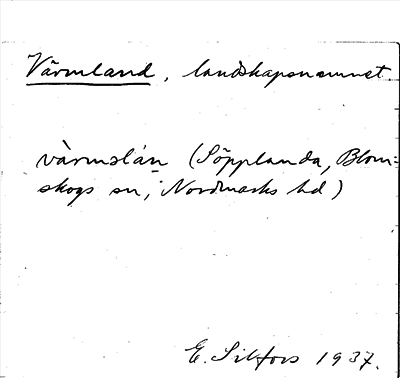 Värmland, landskapsnamnet.
värmslán (Söpplanda, Blom=
skogs sn, Nordmarks hd)
E. Silfors 1937.